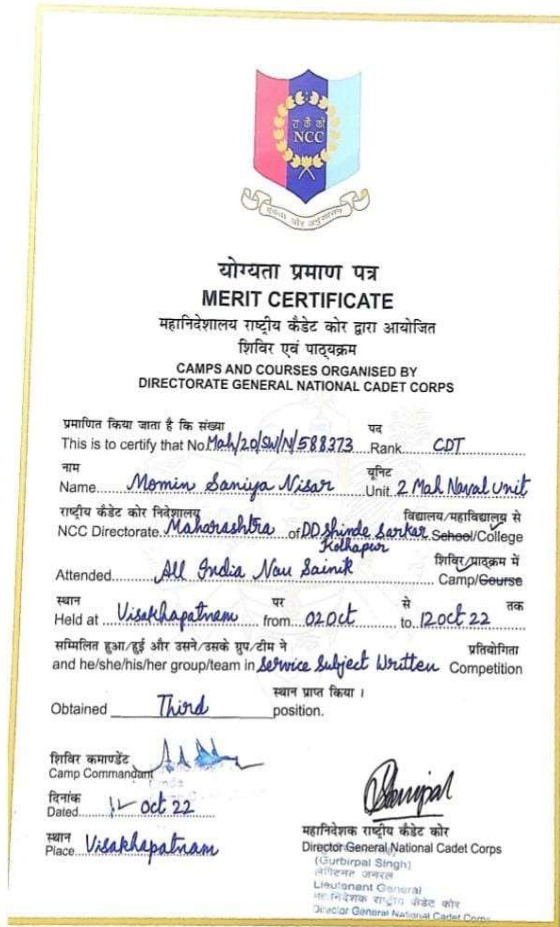 रा कै को
NCC
एकता और अनुशासन
योग्यता प्रमाण पत्र
MERIT CERTIFICATE
महानिदेशालय राष्ट्रीय कैडेट कोर द्वारा आयोजित
शिविर एवं पाठ्यक्रम
CAMPS AND COURSES ORGANISED BY
DIRECTORATE GENERAL NATIONAL CADET CORPS
प्रमाणित किया जाता है कि संख्या पद
This is to certify that No. Mah/20/SW/N/588373 Rank CDT
नाम यूनिट
Name Momin Saniya Nisar Unit 2 Mah Naval Unit
राष्ट्रीय कैडेट कोर निदेशालय विद्यालय/महाविद्यालय से
NCC Directorate Maharashtra of DD Shinde Sarkar School/College
Kolhapur
शिविर/पाठ्क्रम में
Attended All India Nau Sainik Camp/Course
स्थान पर से तक
Held at Visakhapatnam from 02 Oct to 12 Oct 22
सम्मिलित हुआ/हुई और उसने/उसके ग्रुप/टीम ने प्रतियोगिता
and he/she/his/her group/team in Service Subject Written Competition
स्थान प्राप्त किया ।
Obtained Third position.
शिविर कमाण्डेंट
Camp Commandant
दिनांक
Dated 12 Oct 22
स्थान
Place Visakhapatnam
महानिदेशक राष्ट्रीय कैडेट कोर
Director General National Cadet Corps
(Gurbirpal Singh)
लेफ्टिनेंट जनरल
Lieutenant General
महानिदेशक राष्ट्रीय कैडेट कोर
Director General National Cadet Corps